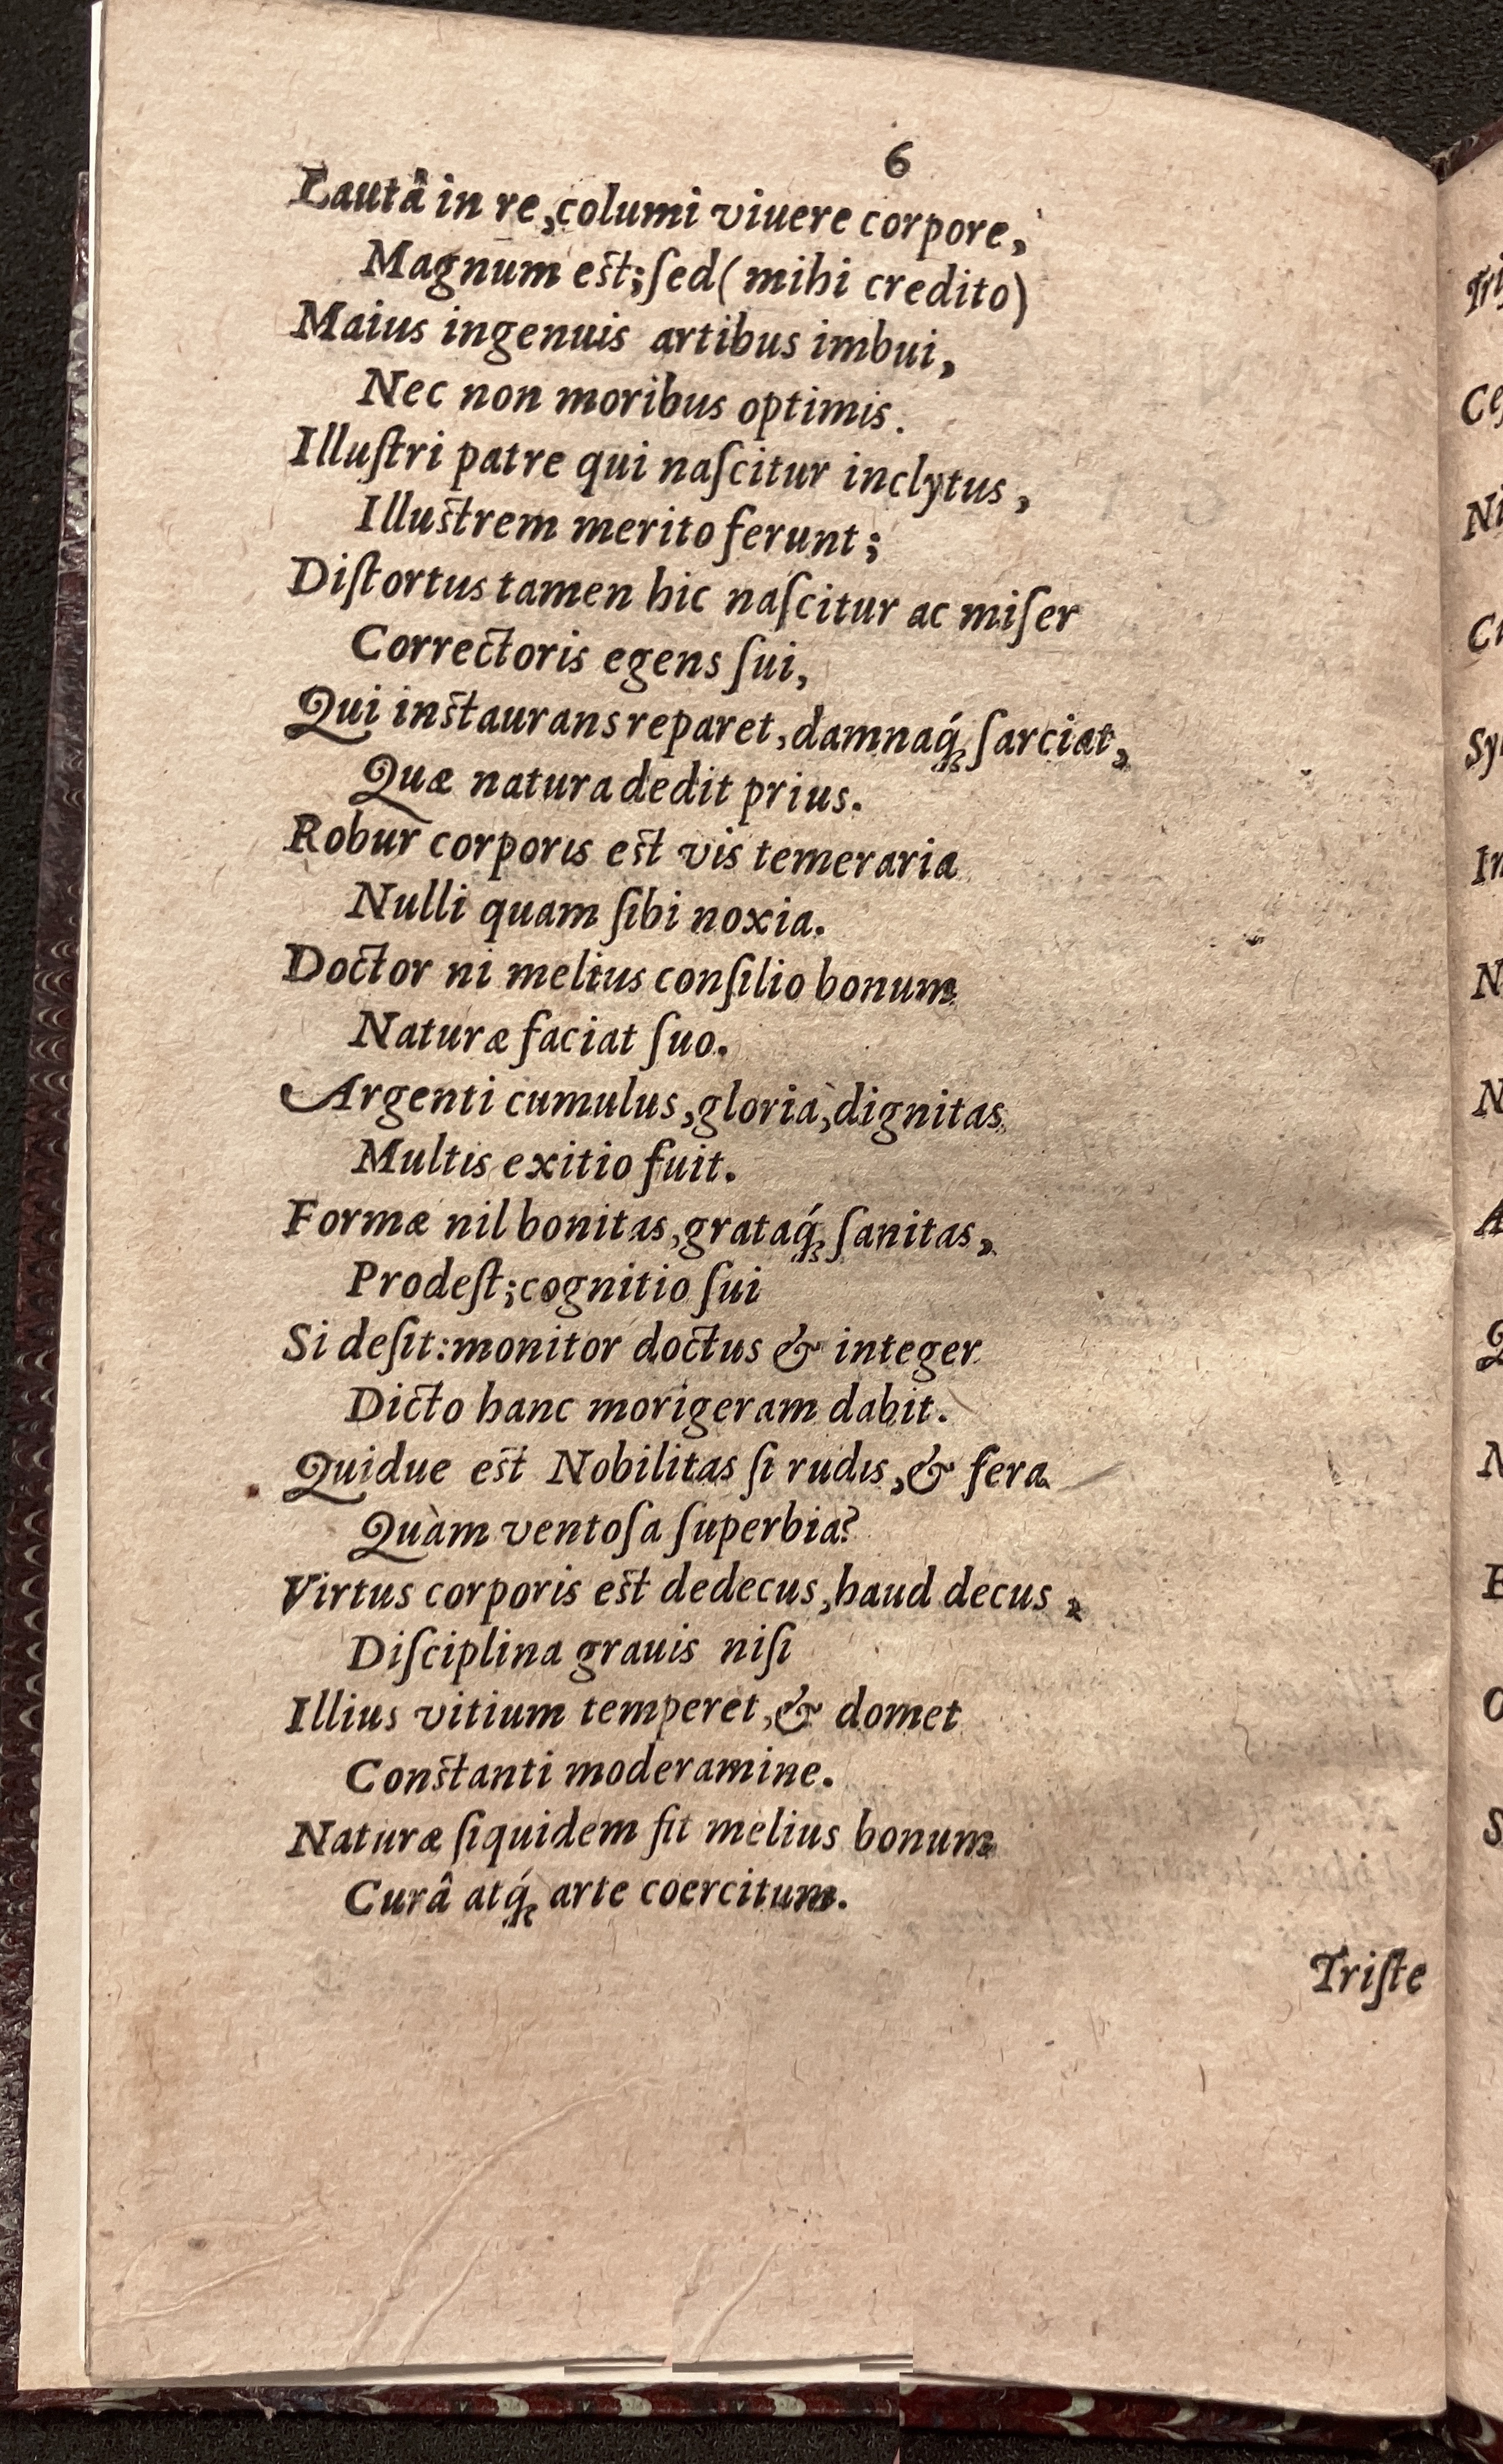 6
Lautâ in re, columi viuere corpore,
Magnum est; ſed (mihi credito)
Maius ingenuis artibus imbui,
Nec non moribus optimis.
Illuſtri patre qui naſcitur inclytus,
Illustrem merito ferunt;
Diſtortus tamen hic naſcitur ac miſer
Correctoris egens ſui,
Qui instaurans reparet, damnaq́; ſarciat,
Quæ natura dedit prius.
Robur corporis est vis temeraria
Nulli quam ſibi noxia.
Doctor ni melius conſilio bonum
Naturæ faciat ſuo.
Argenti cumulus, gloria, dignitas
Multis exitio fuit.
Formæ nil bonitas, grataq́; ſanitas,
Prodeſt; cognitio ſui
Si deſit: monitor doctus & integer
Dicto hanc morigeram dabit.
Quidue est Nobilitas ſi rudis, & fera
Quàm ventoſa ſuperbia?
Virtus corporis est dedecus, haud decus,
Diſciplina grauis niſi
Illius vitium temperet, & domet
Constanti moderamine.
Naturæ ſiquidem fit melius bonum
Curâ atq́; arte coercitum.
Triſte